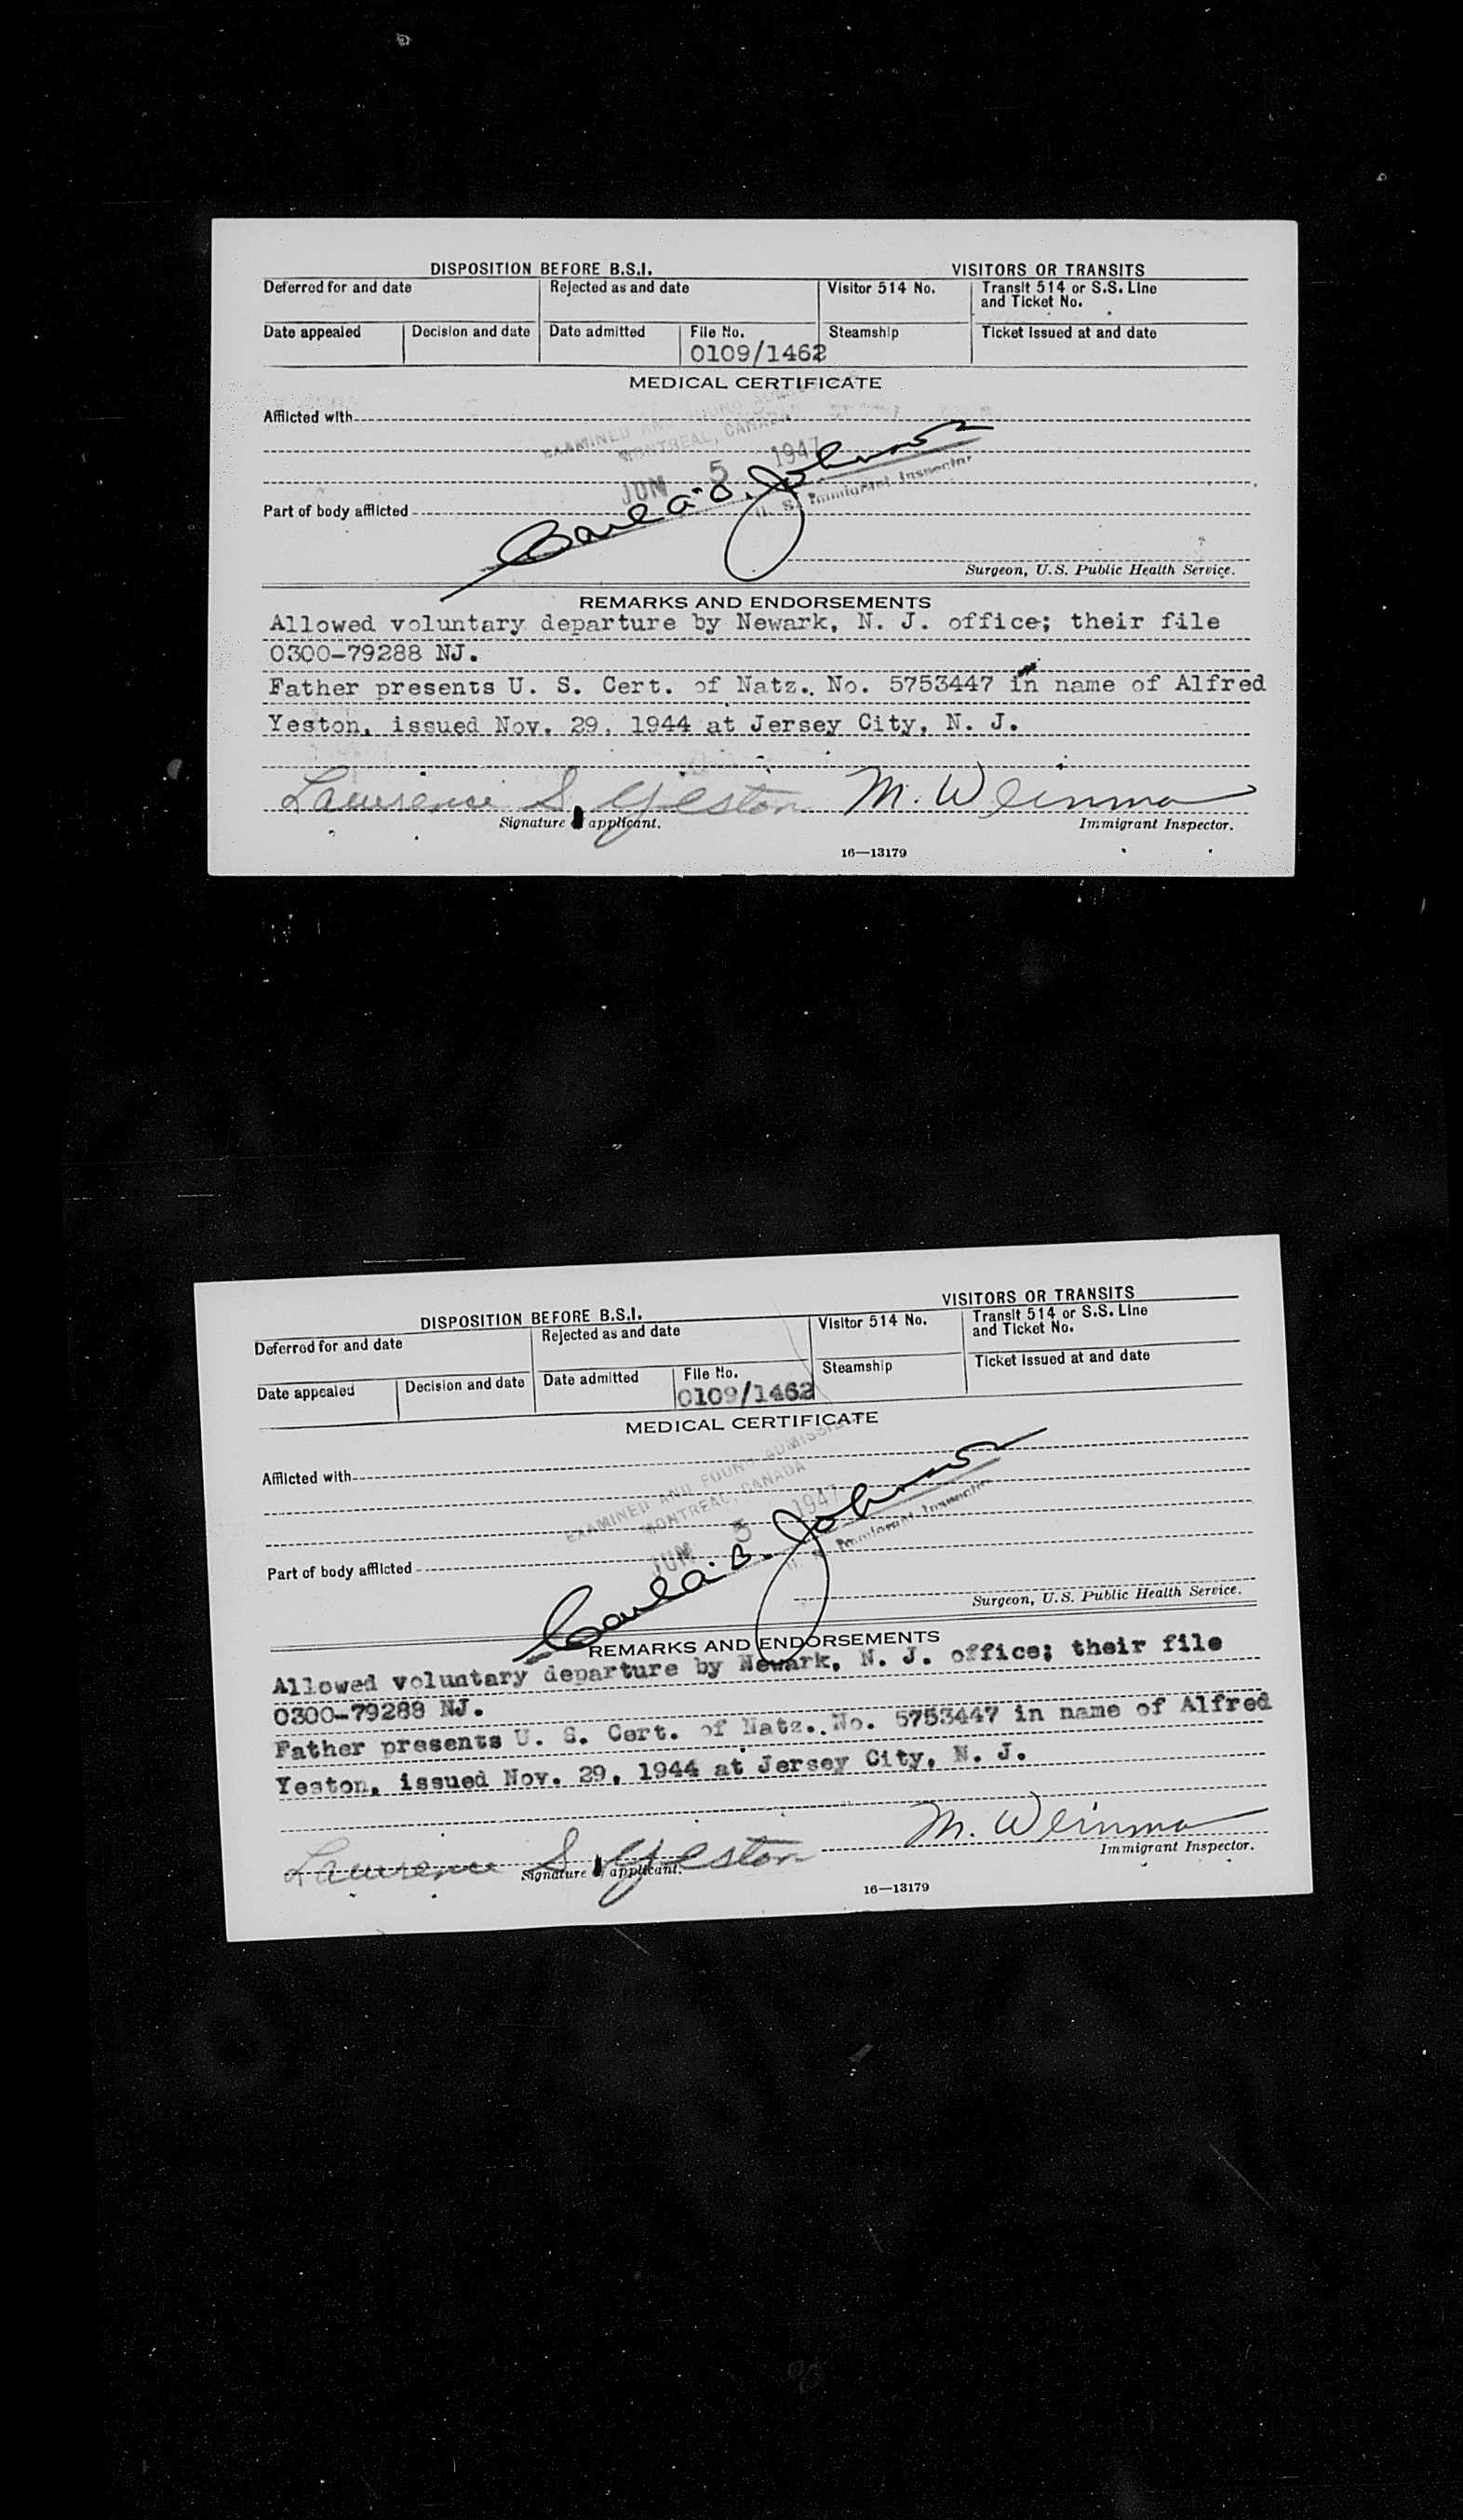 DISPOSITION BEFORE B.S.I.
VISITORS OR TRANSITS
Deferred for and date
Rejected as and date
Visitor 514 No.
Transit 514 or S.S. Line
and Ticket No.
Date appealed
Decision and date
Date admitted
File No.
Steamship
Ticket issued at and date
0109/1462
MEDICAL CERTIFICATE
Afflicted with
EXAMINED AND
MONTREAL, CANADA
JUN 5 1947
Carl A. B. Johnson
U. S. Immigrant Inspector
Part of body afflicted
Surgeon, U.S. Public Health Service.
REMARKS AND ENDORSEMENTS
Allowed voluntary departure by Newark, N. J. office; their file
0300-79288 NJ.
Father presents U. S. Cert. of Natz., No. 5753447 in name of Alfred
Yeston, issued Nov. 29, 1944 at Jersey City, N. J.
Lawrence S. Yeston M. Weinma
Signature applicant.
Immigrant Inspector.
16—13179
DISPOSITION BEFORE B.S.I.
VISITORS OR TRANSITS
Deferred for and date
Rejected as and date
Visitor 514 No.
Transit 514 or S.S. Line
and Ticket No.
Date appealed
Decision and date
Date admitted
File No.
Steamship
Ticket issued at and date
0109/1462
MEDICAL CERTIFICATE
Afflicted with
EXAMINED AND FOUND
MONTREAL, CANADA
JUN 5 1947
Carl A. B. Johnson
U. S. Immigrant Inspector
Part of body afflicted
Surgeon, U.S. Public Health Service.
REMARKS AND ENDORSEMENTS
Allowed voluntary departure by Newark, N. J. office; their file
0300-79288 NJ.
Father presents U. S. Cert. of Natz., No. 5753447 in name of Alfred
Yeston, issued Nov. 29, 1944 at Jersey City, N. J.
Lawrence S. Yeston M. Weinma
Signature applicant.
Immigrant Inspector.
16—13179